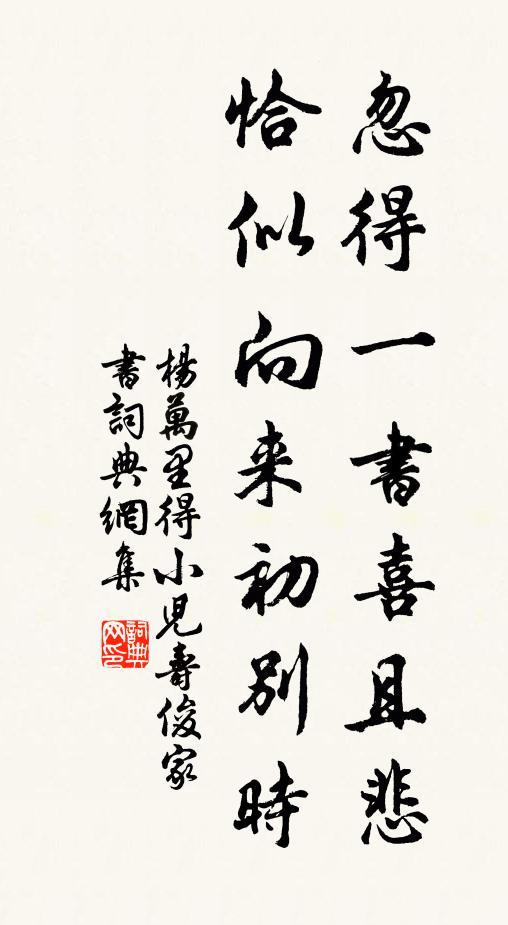 忽得一書喜且悲
恰似向来初別時
楊萬里得小児壽俊家
書詞典網集
詞典
网印